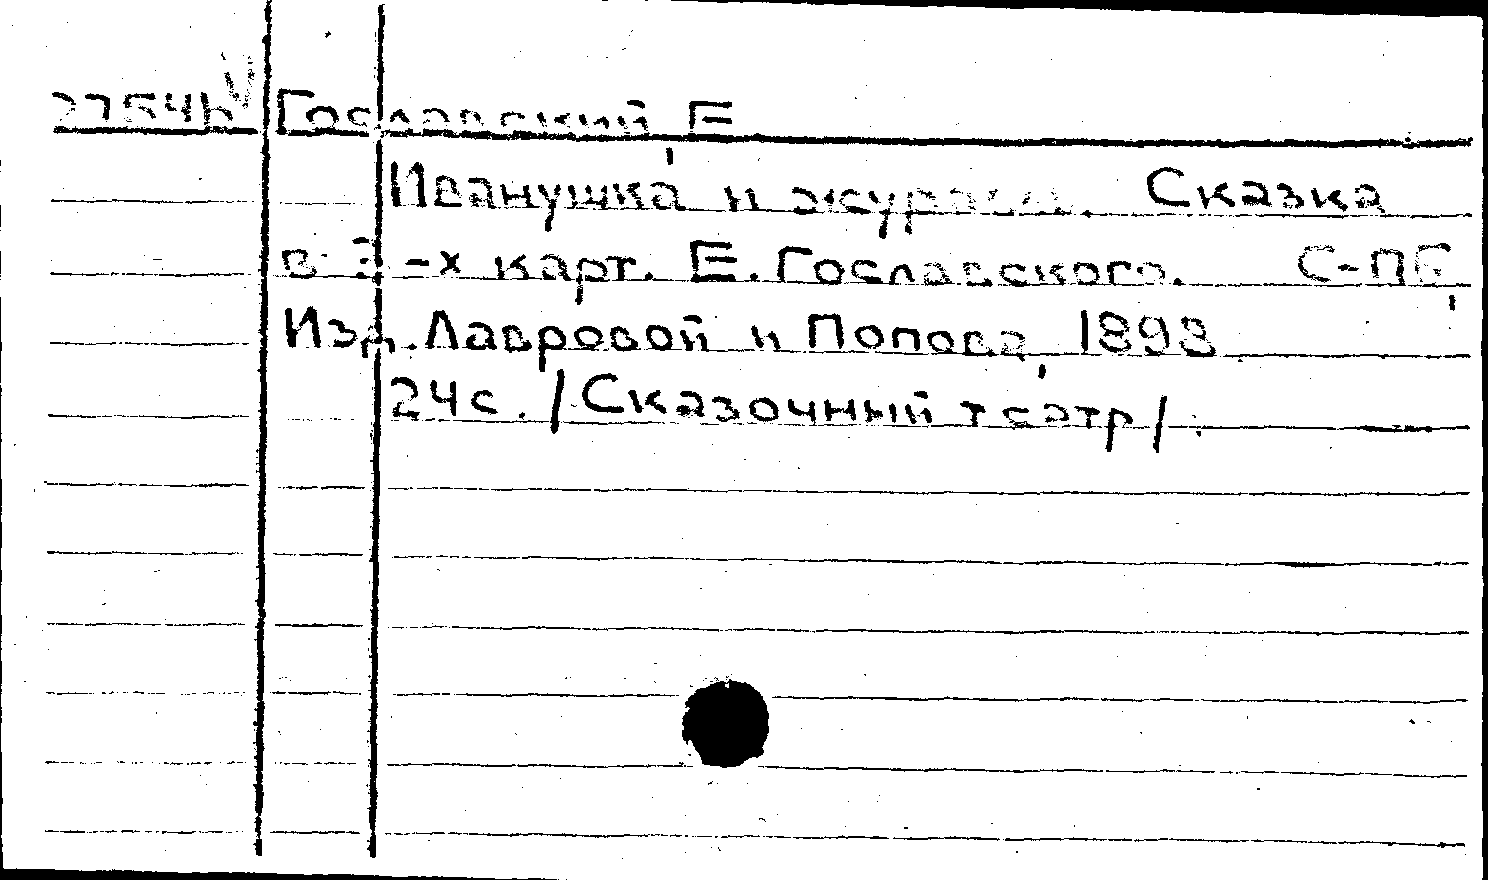 Гославский, Е.
Иванушка и журавли. Сказка
в 3-х карт. Е. Гославского. С-ПБ,
Изд. Лавровой и Попова, 1898
24с. /Сказочный театр/.